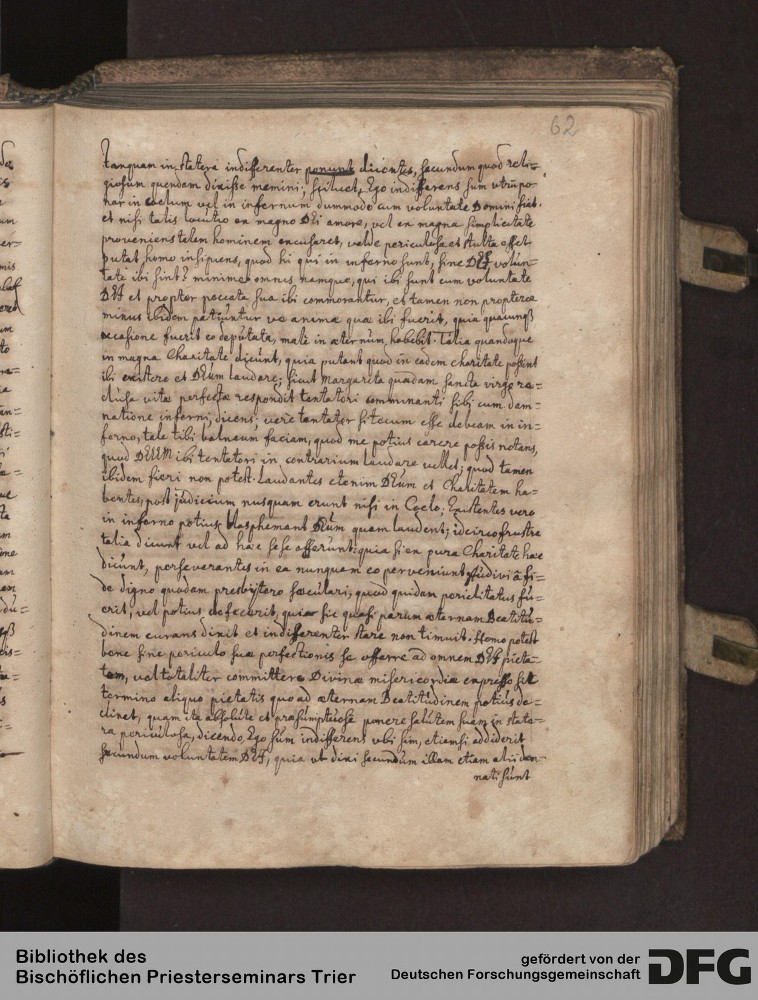 62
tanquam in statera indifferenter ponunt dicentes, secundum quod reli=
giosum quendam dixisse memini; scilicet, Ego indifferens sum utrum po=
nar in coelum vel in infernum dummodo cum voluntate Domini fiat.
et nisi talis locutio ex magno DEi amore, vel ex magna simplicitate
proveniens talem hominem excusaret, valde periculosa et stulta esset
putat homo insipiens, quod hi qui in inferno sunt, sine DEI volun=
tate ibi sint? minime omnes namque, qui ibi sunt cum voluntate
DEI et propter peccata sua ibi commorantur, et tamen non propterea
minus ibidem patiuntur væ animæ quæ ibi fuerit, quia
occasione fuerit eo deputata, male in æternum habebit. Talia quandoque
in magna Charitate dicunt, quia putant quod in eadem charitate possint
ibi existere et DEum laudare; sicut Margareta quædam sancta virgo re=
clusa vitæ perfectæ respondit tentatori comminanti sibi cum dam=
natione inferni, dicens; vere tentator si tecum esse debeam in in=
ferno, tale tibi balneum faciam, quod me potius carere possis notans,
quod DEUM ibi tentatori in contrarium laudare vellet; quod tamen
ibidem fieri non potest. Laudantes etenim DEum et Charitatem ha=
bentes, post judicium nusquam erunt nisi in Coelo; Existentes vero
in inferno potius blasphemant DEum quam laudent; idcirco frustra
talia dicunt vel ad hæc sese offerunt; quia si ex pura Charitate hæc
dicunt, perseverantes in ea nunquam eo perveniunt. Audivi à fi=
de digno quodam presbijtero sæculari, quod quidam periclitatus fu=
erit, vel potius defecerit, quia sic quasi parum æternam Beatitu=
dinem curans dixit et indifferenter stare non timuit. Homo potest
bene sine periculo suæ perfectionis se offerre ad omnem DEI pieta=
tem, vel totaliter committere Divinæ misericordiæ expresso sit
termino aliquo pietatis quo ad æternam Beatitudinem potius de=
clinet, quam ita absolute et præsumptuose ponere salutem suam in state=
ra periculosa, dicendo, Ego sum indifferens ubi sim, etiamsi addiderit
secundum voluntatem DEI, quia ut dixi secundum illam etiam alii dam=
nati sunt
Bibliothek des
Bischöflichen Priesterseminars Trier
gefördert von der
Deutschen Forschungsgemeinschaft
DFG